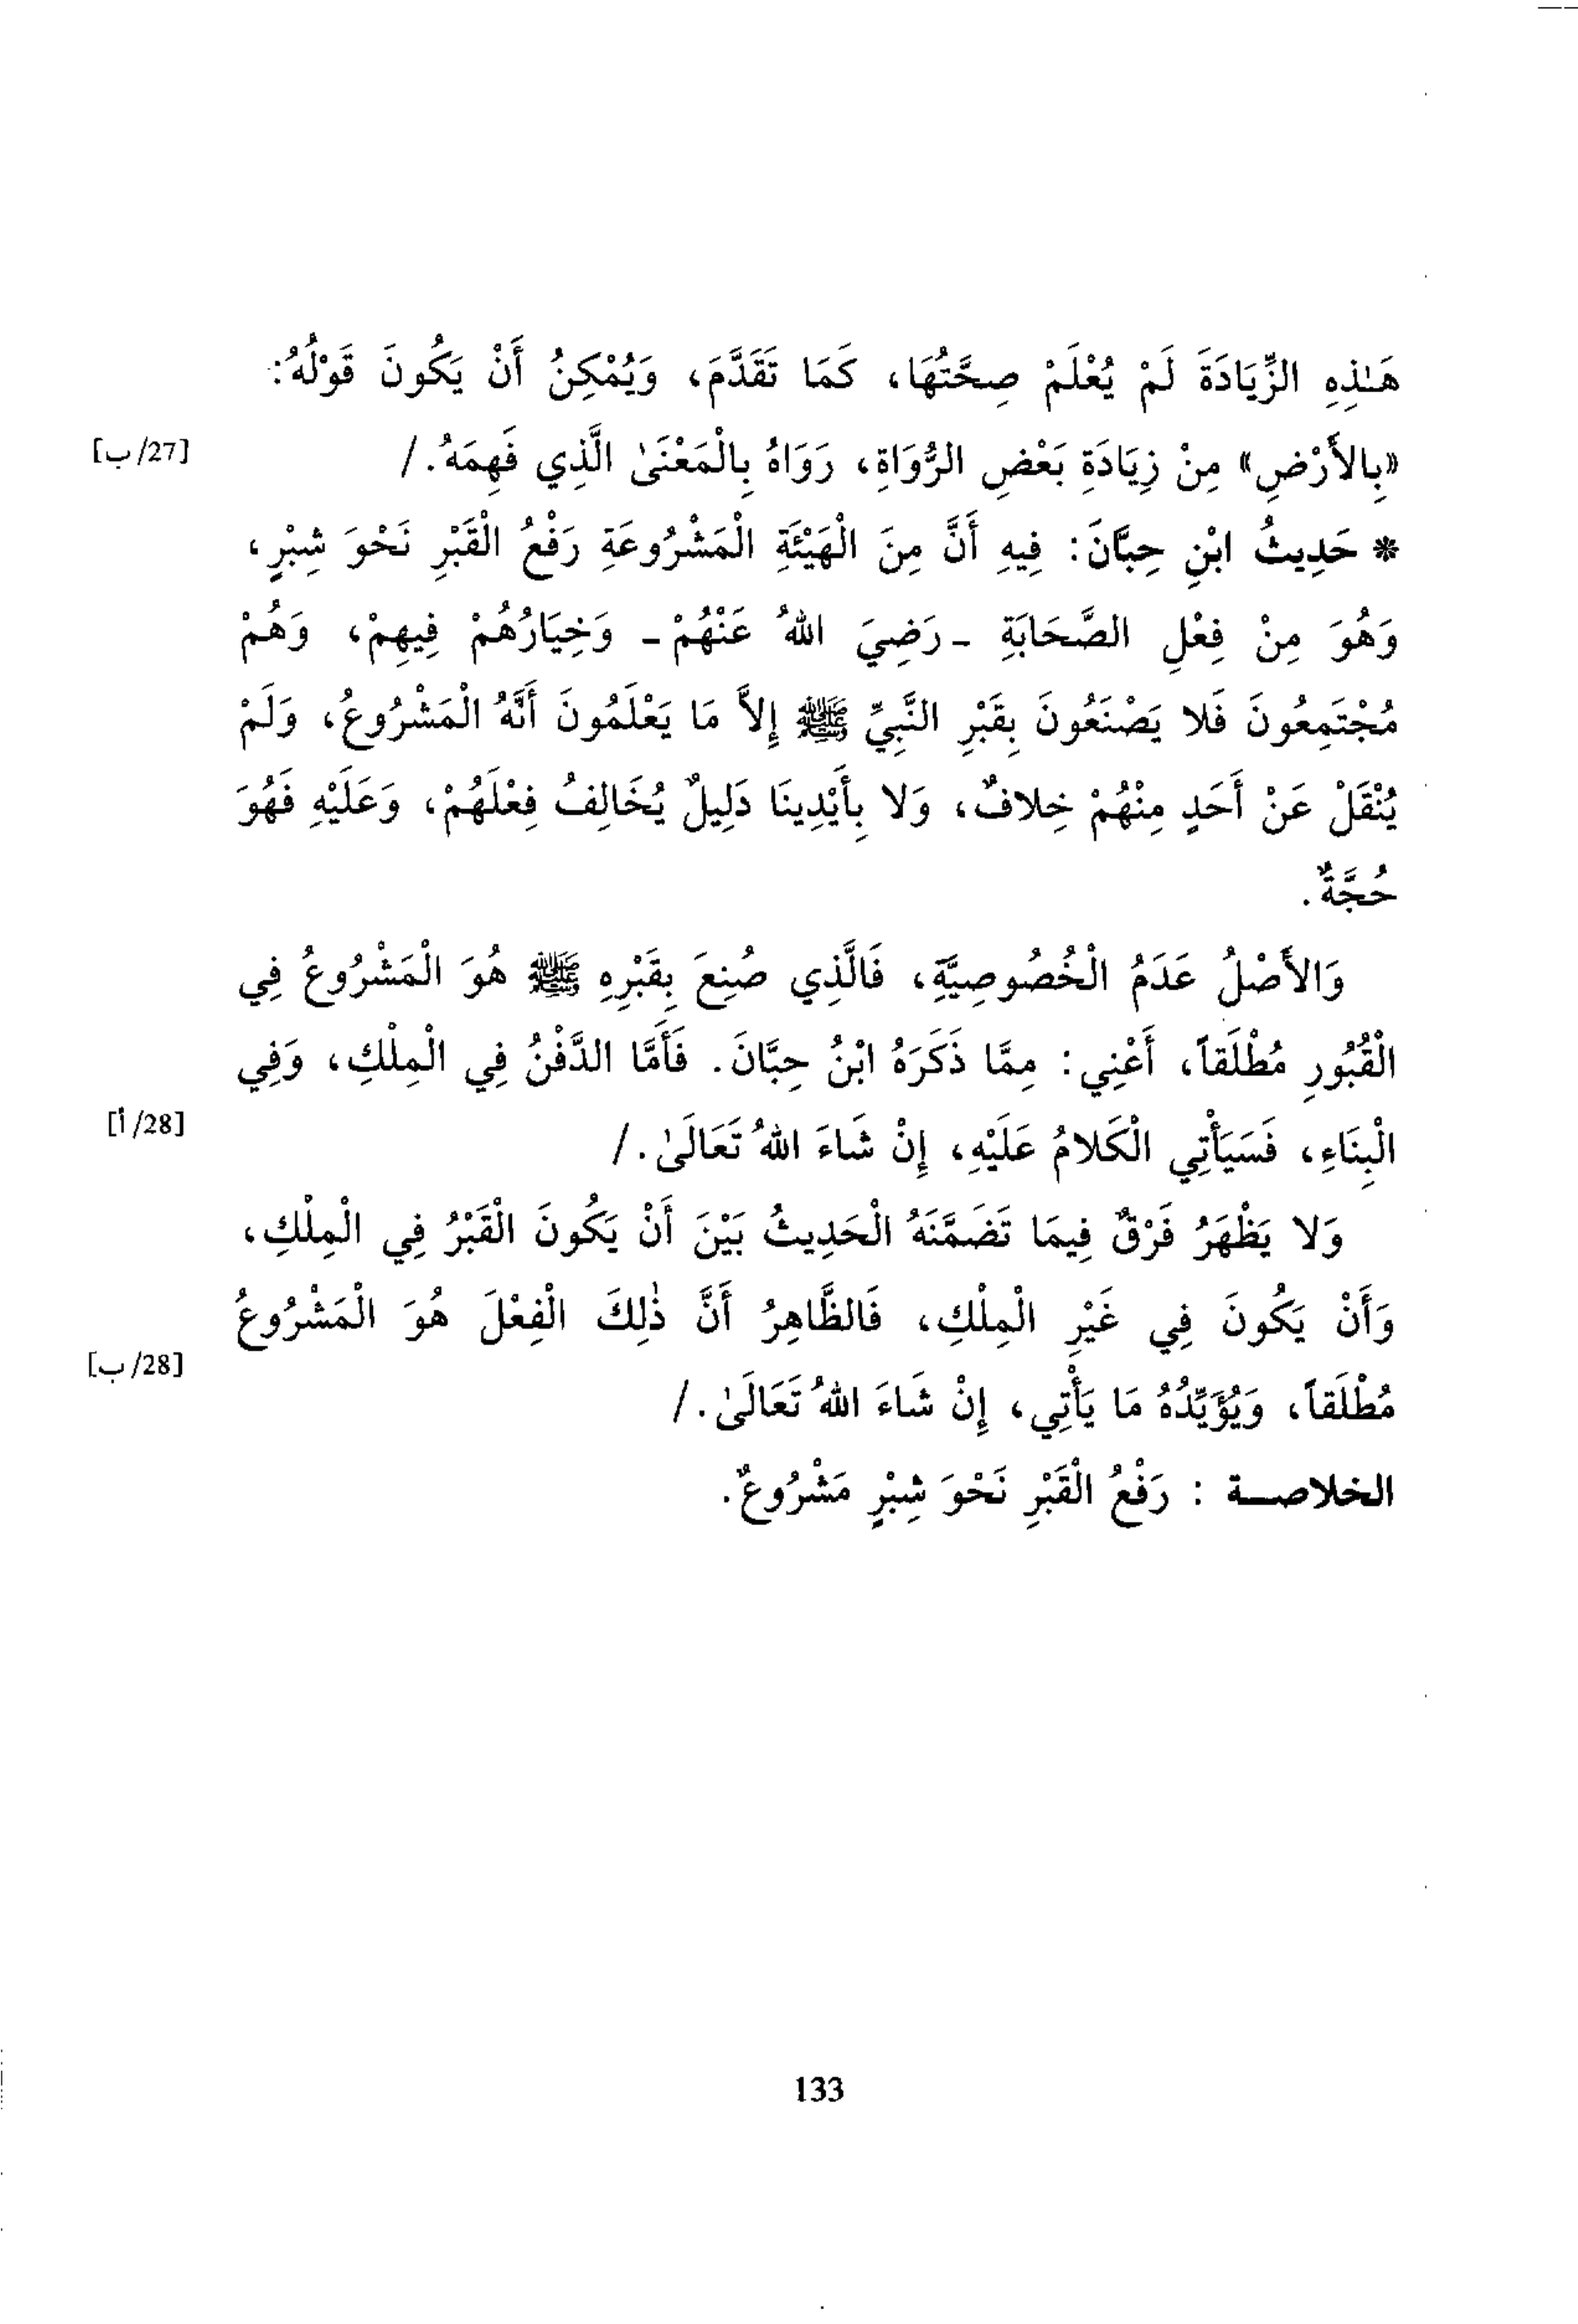 هَـٰذِهِ الزِّيَادَةَ لَمْ يُعْلَمْ صِحَّتُهَا، كَمَا تَقَدَّمَ، وَيُمْكِنُ أَنْ يَكُونَ قَوْلُهُ:
«بِالأَرْضِ» مِنْ زِيَادَةِ بَعْضِ الرُّوَاةِ، رَوَاهُ بِالْمَعْنَىٰ الَّذِي فَهِمَهُ. / [27/ب]
* حَدِيثُ ابْنِ حِبَّانَ: فِيهِ أَنَّ مِنَ الْهَيْئَةِ الْمَشْرُوعَةِ رَفْعُ الْقَبْرِ نَحْوَ شِبْرٍ،
وَهُوَ مِنْ فِعْلِ الصَّحَابَةِ ـ رَضِيَ اللهُ عَنْهُمْ ـ وَخِيَارُهُمْ فِيهِمْ، وَهُمْ
مُجْتَمِعُونَ فَلا يَصْنَعُونَ بِقَبْرِ النَّبِيِّ ﷺ إِلاَّ مَا يَعْلَمُونَ أَنَّهُ الْمَشْرُوعُ، وَلَمْ
يُنْقَلْ عَنْ أَحَدٍ مِنْهُمْ خِلافٌ، وَلا بِأَيْدِينَا دَلِيلٌ يُخَالِفُ فِعْلَهُمْ، وَعَلَيْهِ فَهُوَ
حُجَّةٌ.
وَالأَصْلُ عَدَمُ الْخُصُوصِيَّةِ، فَالَّذِي صُنِعَ بِقَبْرِهِ ﷺ هُوَ الْمَشْرُوعُ فِي
الْقُبُورِ مُطْلَقاً، أَعْنِي: مِمَّا ذَكَرَهُ ابْنُ حِبَّانَ. فَأَمَّا الدَّفْنُ فِي الْمِلْكِ، وَفِي
الْبِنَاءِ، فَسَيَأْتِي الْكَلامُ عَلَيْهِ، إِنْ شَاءَ اللهُ تَعَالَىٰ. / [28/أ]
وَلا يَظْهَرُ فَرْقٌ فِيمَا تَضَمَّنَهُ الْحَدِيثُ بَيْنَ أَنْ يَكُونَ الْقَبْرُ فِي الْمِلْكِ،
وَأَنْ يَكُونَ فِي غَيْرِ الْمِلْكِ، فَالظَّاهِرُ أَنَّ ذٰلِكَ الْفِعْلَ هُوَ الْمَشْرُوعُ
مُطْلَقاً، وَيُؤَيِّدُهُ مَا يَأْتِي، إِنْ شَاءَ اللهُ تَعَالَىٰ. / [28/ب]
الخلاصـة : رَفْعُ الْقَبْرِ نَحْوَ شِبْرٍ مَشْرُوعٌ.
133